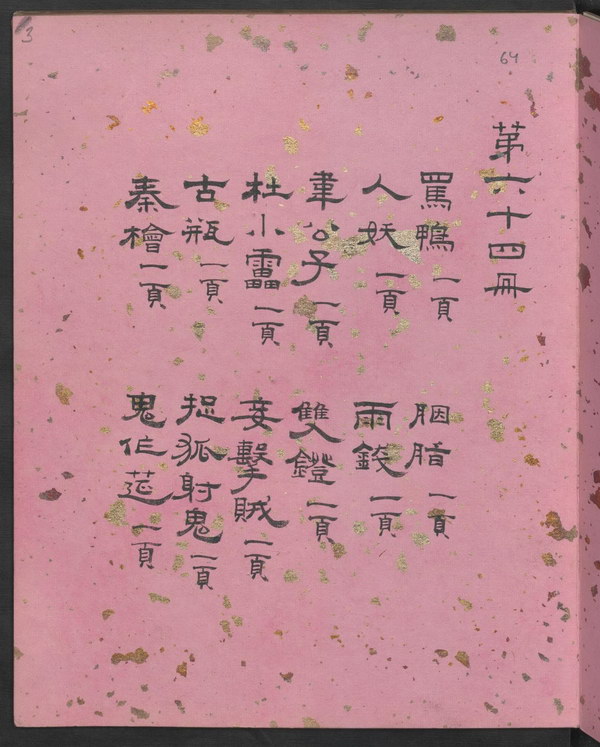 3
64
第六十四冊
罵鴨 一頁
人妖 一頁
韋公子 一頁
杜小靁 一頁
古瓶 一頁
秦檜 一頁
胭脂 一頁
雨錢 一頁
雙鐙 一頁
妾擊賊 一頁
捉狐射鬼 一頁
鬼作莚 一頁